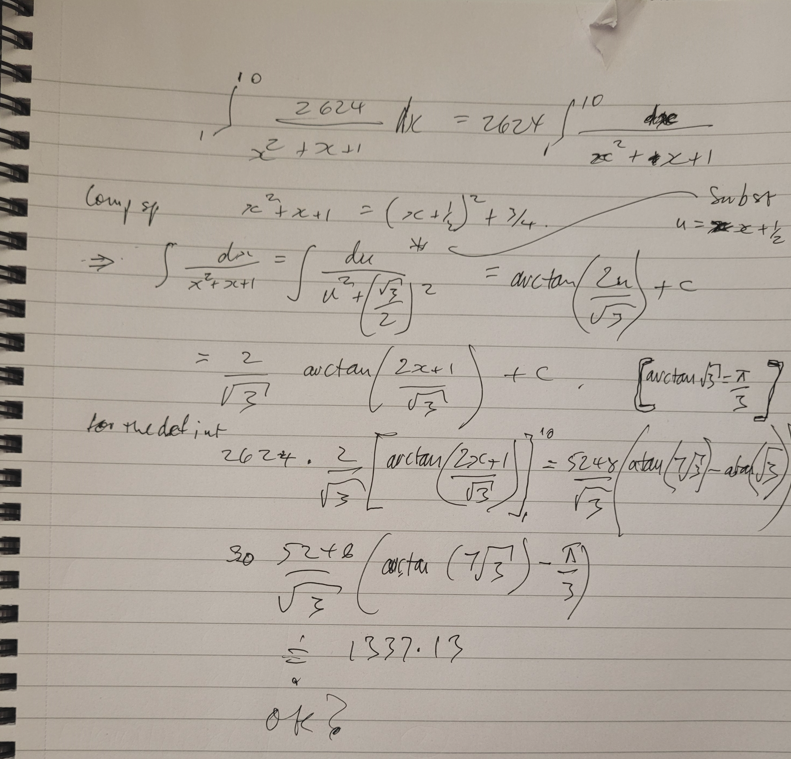 ∫₁¹⁰ 2624/(x²+x+1) dx = 2624 ∫₁¹⁰ dx/(x²+x+1)
Comp sq x²+x+1 = (x+½)² + 3/4. Subst
* u = x+½
⇒ ∫ dx/(x²+x+1) = ∫ du/(u²+(√3/2)²) = arctan(2u/√3) + c
= 2/√3 arctan((2x+1)/√3) + c. [arctan √3 = π/3]
for the def int
2624 · 2/√3 [arctan((2x+1)/√3)]₁¹⁰ = 5248/√3 (atan(7√3) - atan(√3))
so 5248/√3 (arctan(7√3) - π/3)
≐ 1337.13
ok?